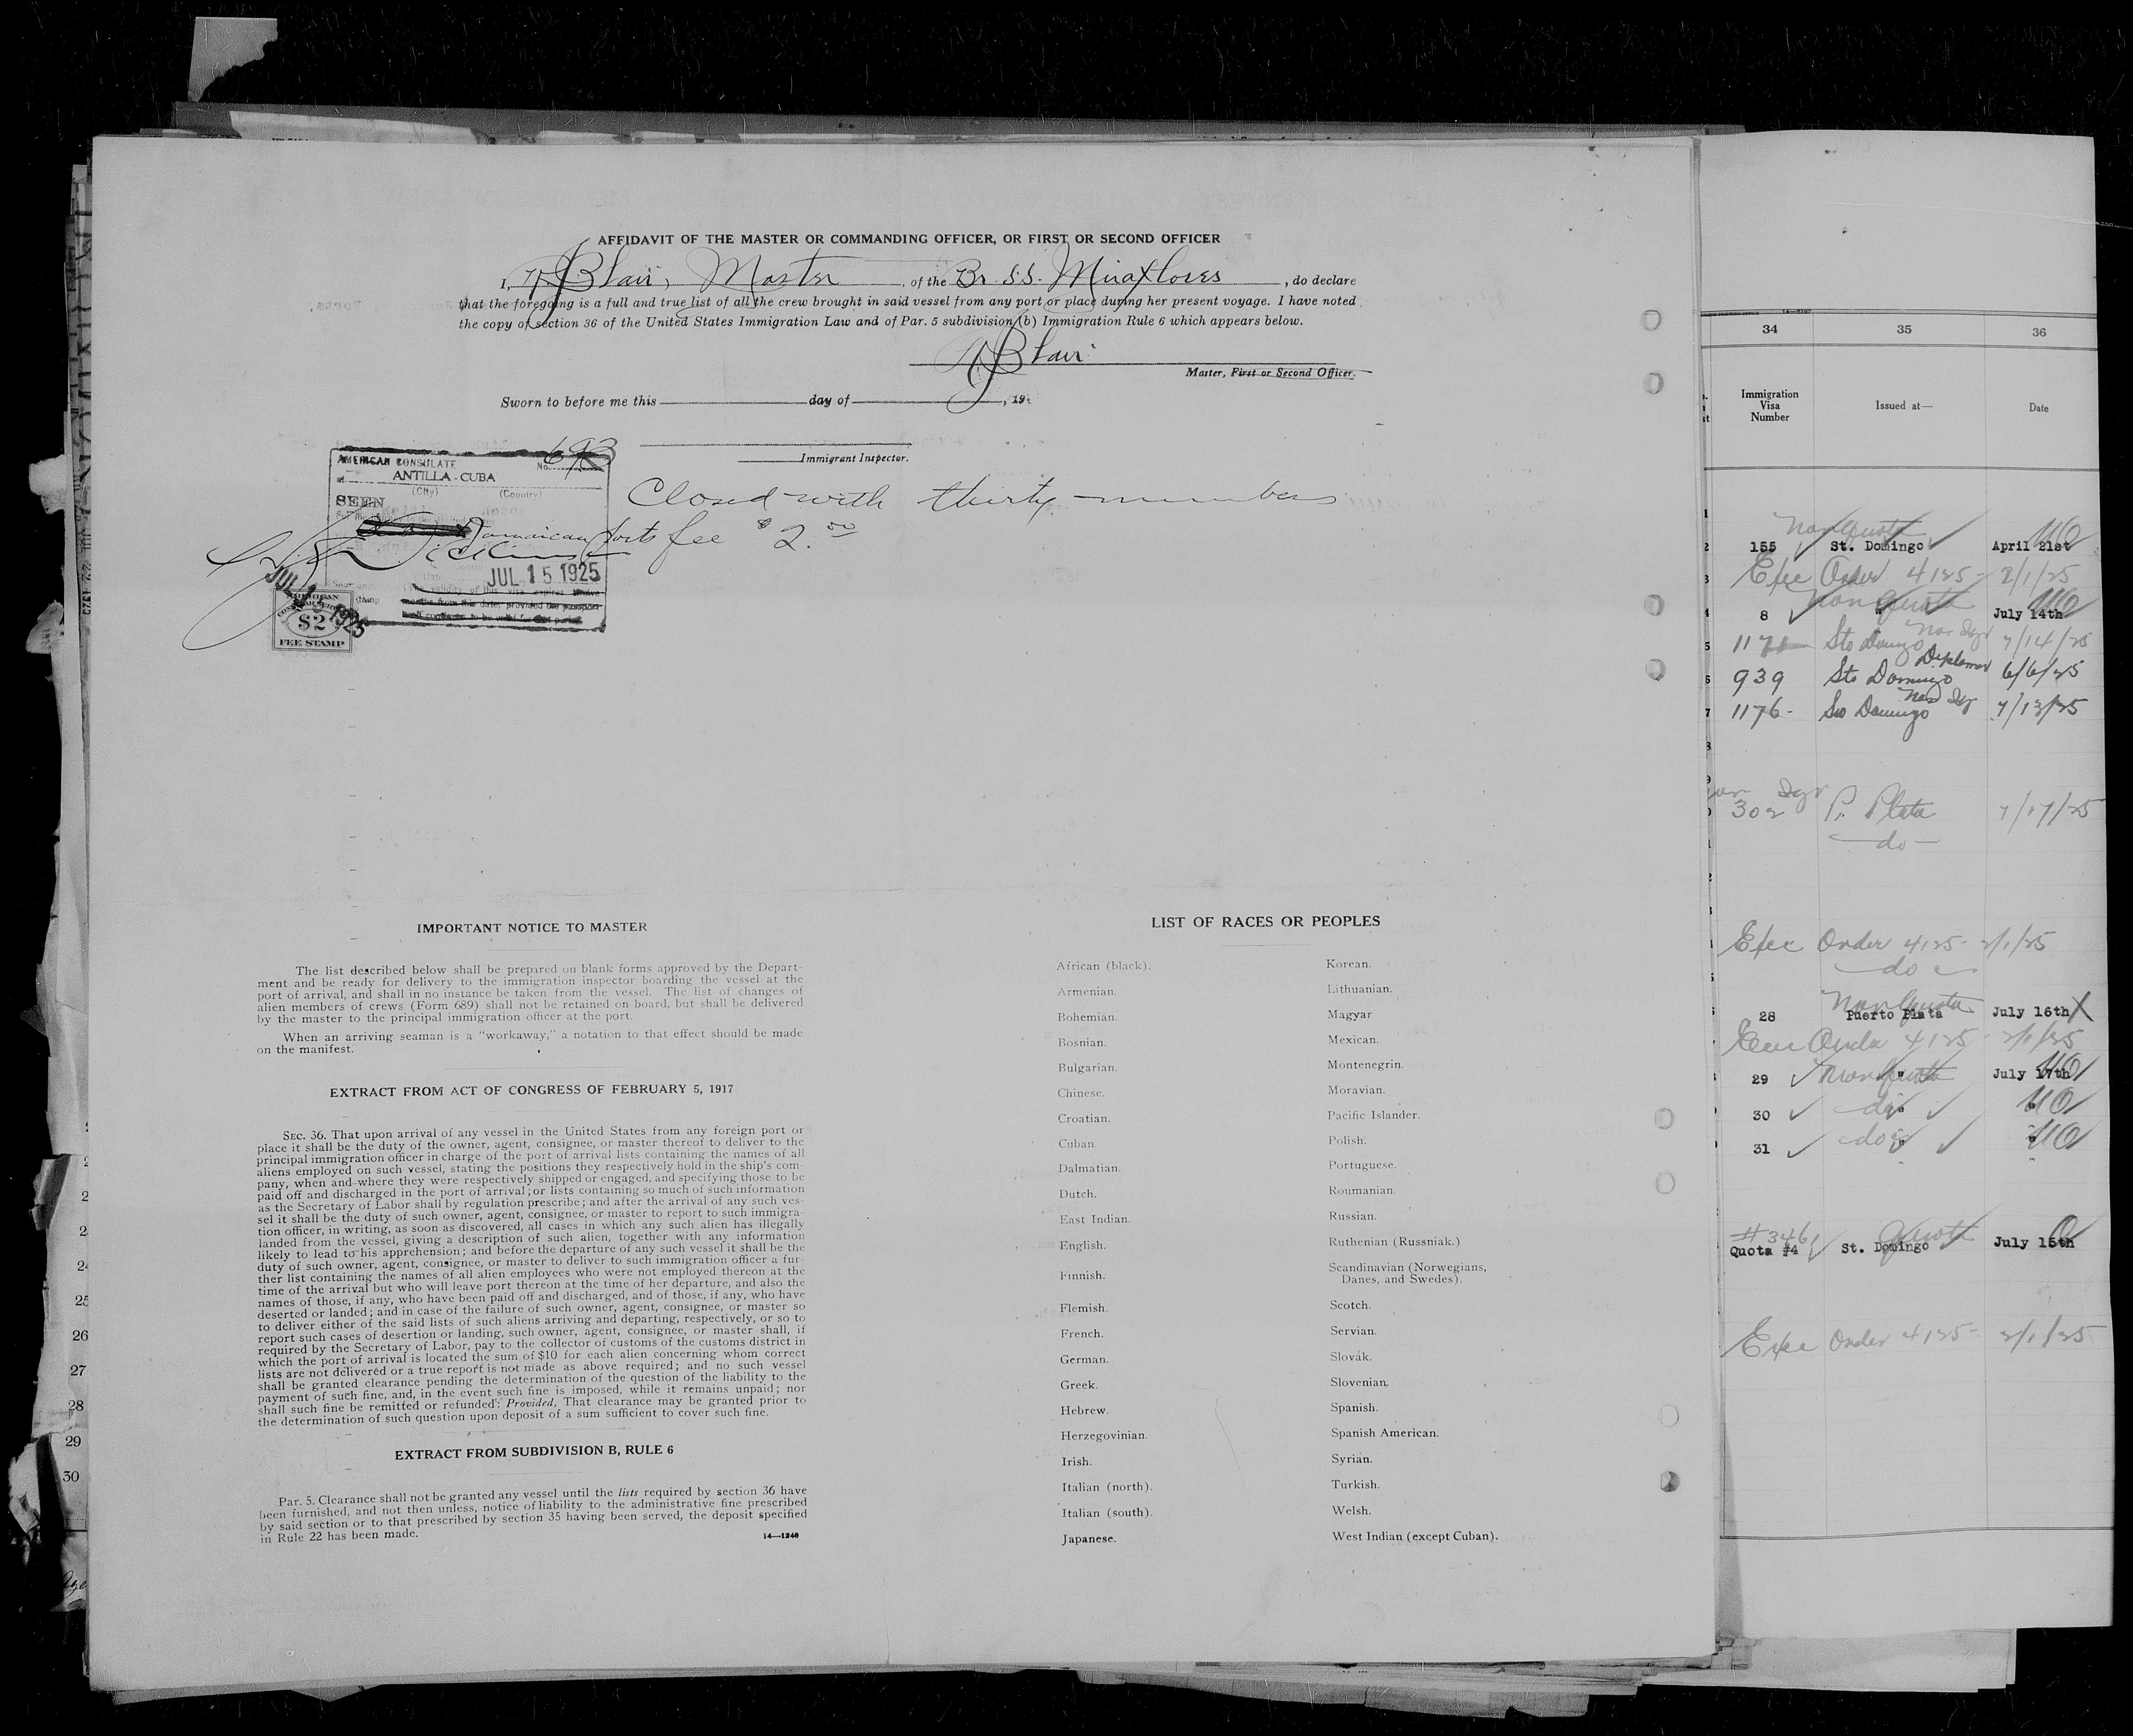 AFFIDAVIT OF THE MASTER OR COMMANDING OFFICER, OR FIRST OR SECOND OFFICER
I, Blair, Master of the Br. S.S. Miraflores, do declare
that the foregoing is a full and true list of all the crew brought in said vessel from any port or place during her present voyage. I have noted
the copy of section 36 of the United States Immigration Law and of Par. 5 subdivision (b) Immigration Rule 6 which appears below.
Blair
Master, First or Second Officer.
Sworn to before me this day of , 19
Immigrant Inspector.
AMERICAN CONSULATE
No. 693
ANTILLA-CUBA
(City) (Country)
SEEN
Closed with thirty members
Jamaican ports fee $2.00
JUL 15 1925
JUL 1 1925
AMERICAN
$2
FEE STAMP
IMPORTANT NOTICE TO MASTER
The list described below shall be prepared on blank forms approved by the Depart-
ment and be ready for delivery to the immigration inspector boarding the vessel at the
port of arrival, and shall in no instance be taken from the vessel. The list of changes of
alien members of crews (Form 689) shall not be retained on board, but shall be delivered
by the master to the principal immigration officer at the port.
When an arriving seaman is a "workaway," a notation to that effect should be made
on the manifest.
EXTRACT FROM ACT OF CONGRESS OF FEBRUARY 5, 1917
SEC. 36. That upon arrival of any vessel in the United States from any foreign port or
place it shall be the duty of the owner, agent, consignee, or master thereof to deliver to the
principal immigration officer in charge of the port of arrival lists containing the names of all
aliens employed on such vessel, stating the positions they respectively hold in the ship's com-
pany, when and where they were respectively shipped or engaged, and specifying those to be
paid off and discharged in the port of arrival; or lists containing so much of such information
as the Secretary of Labor shall by regulation prescribe; and after the arrival of any such ves-
sel it shall be the duty of such owner, agent, consignee, or master to report to such immigra-
tion officer, in writing, as soon as discovered, all cases in which any such alien has illegally
landed from the vessel, giving a description of such alien, together with any information
likely to lead to his apprehension; and before the departure of any such vessel it shall be the
duty of such owner, agent, consignee, or master to deliver to such immigration officer a fur-
ther list containing the names of all alien employees who were not employed thereon at the
time of the arrival but who will leave port thereon at the time of her departure, and also the
names of those, if any, who have been paid off and discharged, and of those, if any, who have
deserted or landed; and in case of the failure of such owner, agent, consignee, or master so
to deliver either of the said lists of such aliens arriving and departing, respectively, or so to
report such cases of desertion or landing, such owner, agent, consignee, or master shall, if
required by the Secretary of Labor, pay to the collector of customs of the customs district in
which the port of arrival is located the sum of $10 for each alien concerning whom correct
lists are not delivered or a true report is not made as above required; and no such vessel
shall be granted clearance pending the determination of the question of the liability to the
payment of such fine, and, in the event such fine is imposed, while it remains unpaid; nor
shall such fine be remitted or refunded: Provided, That clearance may be granted prior to
the determination of such question upon deposit of a sum sufficient to cover such fine.
EXTRACT FROM SUBDIVISION B, RULE 6
Par. 5. Clearance shall not be granted any vessel until the lists required by section 36 have
been furnished, and not then unless, notice of liability to the administrative fine prescribed
by said section or to that prescribed by section 35 having been served, the deposit specified
in Rule 22 has been made.
14—1240
LIST OF RACES OR PEOPLES
African (black).
Armenian.
Bohemian.
Bosnian.
Bulgarian.
Chinese.
Croatian.
Cuban.
Dalmatian.
Dutch.
East Indian.
English.
Finnish.
Flemish.
French.
German.
Greek.
Hebrew.
Herzegovinian.
Irish.
Italian (north).
Italian (south).
Japanese.
Korean.
Lithuanian.
Magyar
Mexican.
Montenegrin.
Moravian.
Pacific Islander.
Polish.
Portuguese.
Roumanian.
Russian.
Ruthenian (Russniak.)
Scandinavian (Norwegians,
Danes, and Swedes).
Scotch.
Servian.
Slovak.
Slovenian.
Spanish.
Spanish American.
Syrian.
Turkish.
Welsh.
West Indian (except Cuban).
34 35 36
Immigration
Visa
Number
Issued at—
Date
Non Quota
155 St. Domingo April 21st
Exec Order 4125 - 2/1/25
Non Quota
8 " July 14th
1171 Sto Domingo 7/14/25
939 Sto Domingo Diplomat 6/6/25
1176 - Sto Domingo 7/13/25
302 P. Plata 7/17/25
do
Exec Order 4125 - 2/1/25
do
Non Quota
28 Puerto Plata July 16th
Exec Order 4125 - 2/1/25
29 Non Quota July 17th
30 do
31 do
#346 Quota
Quota #4 St. Domingo July 15th
Exec Order 4125 - 2/1/25
24
25
26
27
28
29
30